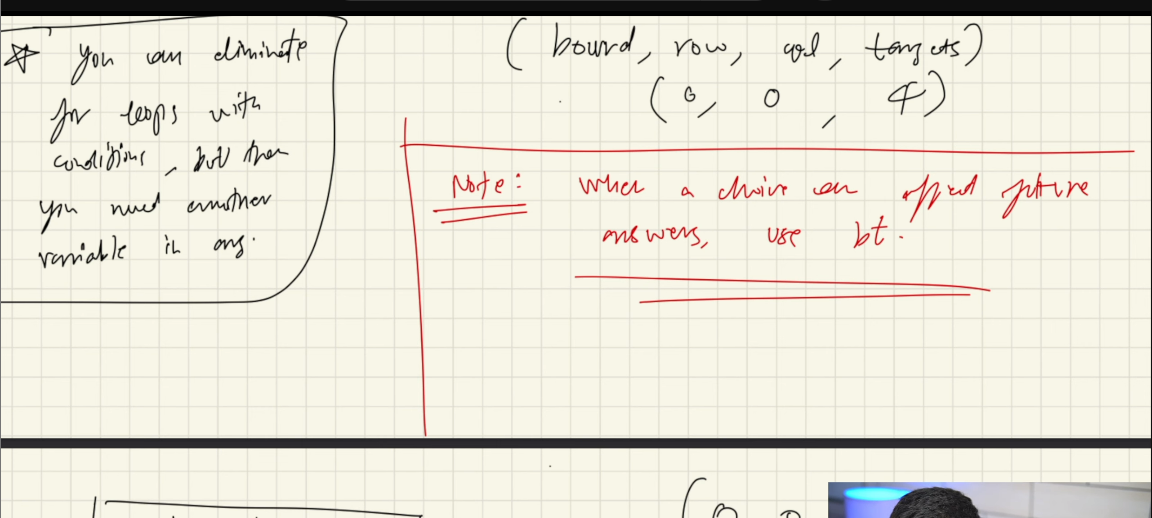 ☆ You can eliminate
for loops with
conditions, but then
you need another
variable in arg.
(board, row, col, targets)
(0, 0, 4)
Note: When a choice can affect future
answers, use bt.